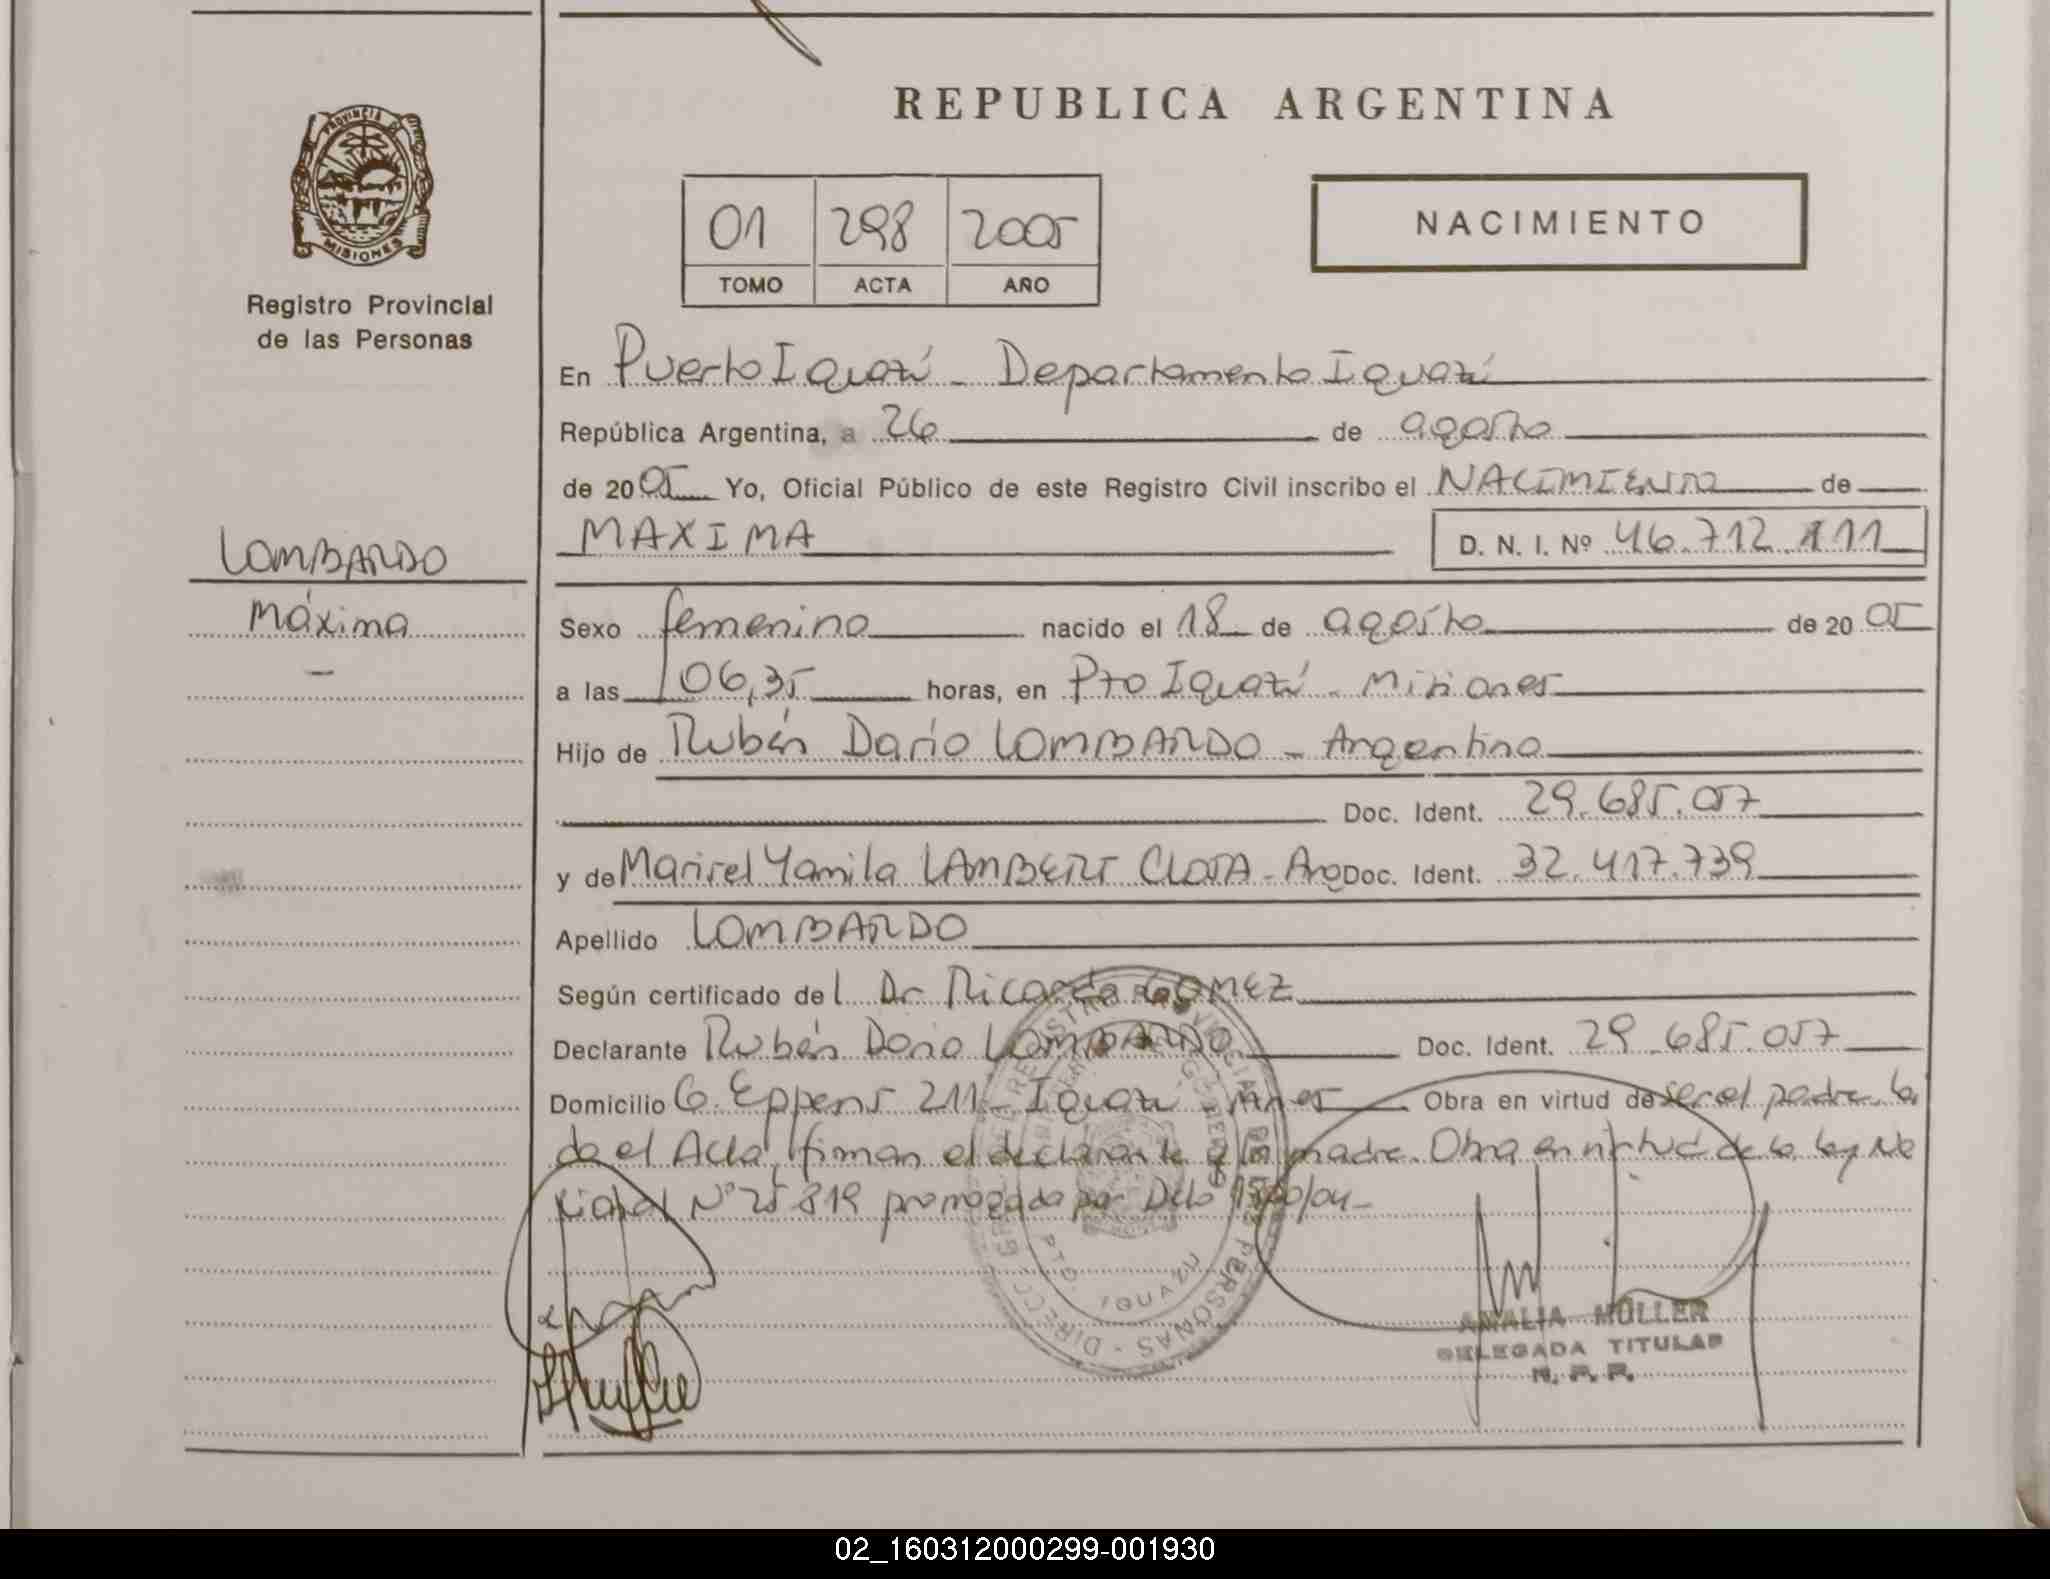 REPUBLICA ARGENTINA
PROVINCIA DE
MISIONES
Registro Provincial
de las Personas
01 298 2005
TOMO ACTA AÑO
NACIMIENTO
En Puerto Iguazú - Departamento Iguazú
República Argentina, a 26 de agosto
de 2005 Yo, Oficial Público de este Registro Civil inscribo el NACIMIENTO de
MAXIMA D. N. I. Nº 46.712.111
LOMBARDO
Máxima
Sexo femenino nacido el 18 de agosto de 2005
a las 06,35 horas, en Pto Iguazú - Misiones
Hijo de Rubén Darío LOMBARDO - Argentina
Doc. Ident. 29.685.057
y de Marisel Yamila LAMBERT CLOTA - Arg Doc. Ident. 32.417.739
Apellido LOMBARDO
Según certificado del Dr Ricardo GOMEZ
Declarante Rubén Dario LOMBARDO Doc. Ident. 29.685.057
Domicilio G. Eppens 211 - Iguazú - Mnes Obra en virtud de ser el padre. Leí
da el Acta, firman el declarante y la madre. Obra en virtud de la ley Na
cional Nº 25 819 prorrogada por Dcto /04-
AMALIA MULLER
DELEGADA TITULAR
R. P. P.
02_160312000299-001930